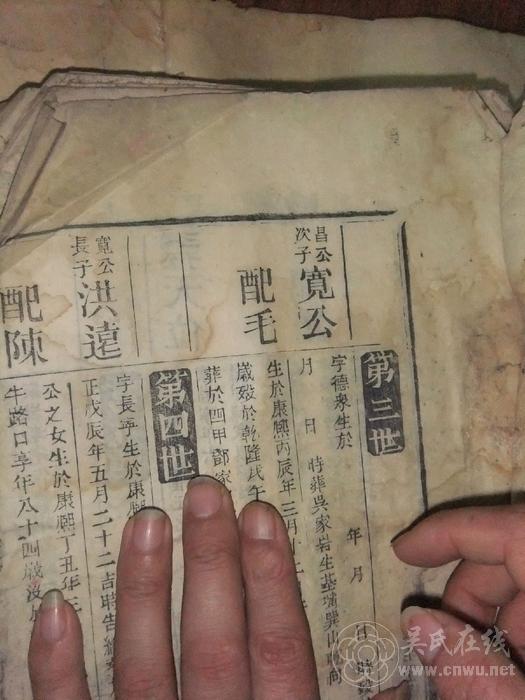 第三世
昌公次子
寬公
字德衆生於 年 月 日 時
月 日 時葬吳家岩生基埔巽山
配毛
生於康熙丙辰年三月十二
歲殁於乾隆戊午
葬於四甲鄒家
第四世
寬公長子
洪遠
字長寧生於康熙
正戊辰年五月二十二吉時告終
配陳
公之女生於康熙丁丑年
牛路口享年八十四歲没
吳氏在线
www.cnwu.net